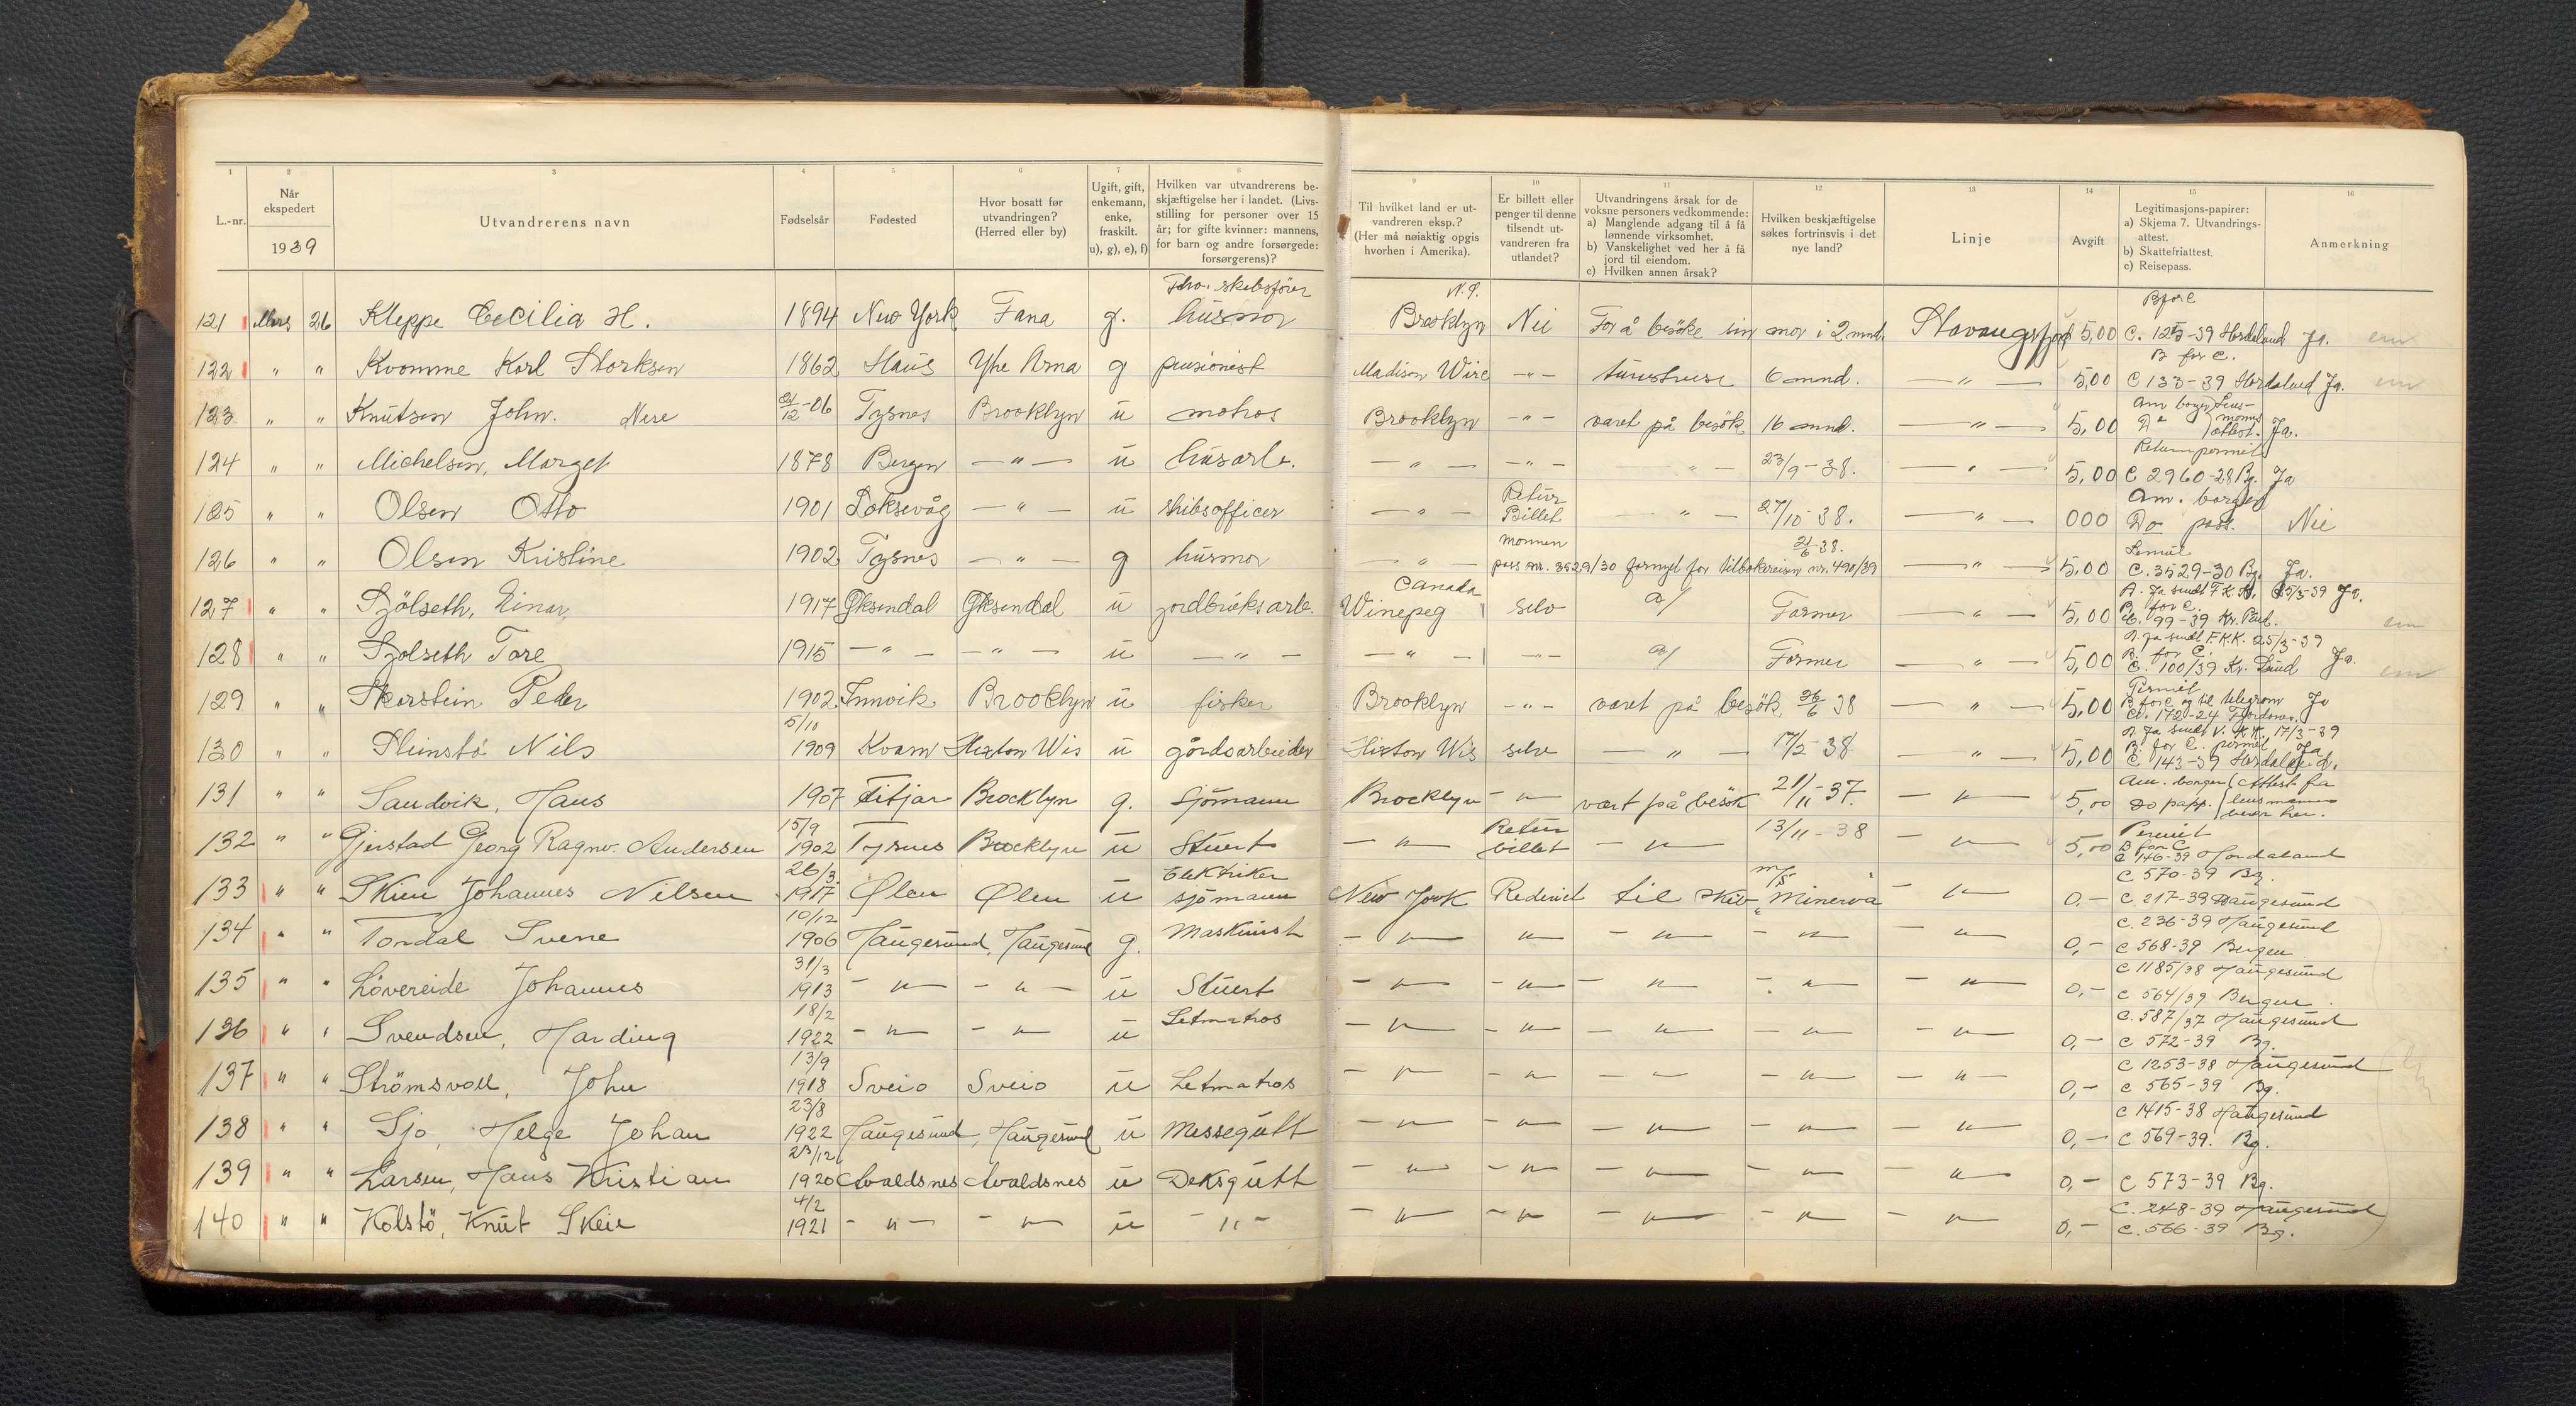 1 2 3 4 5 6 7 8 9 10 11 12 13 14 15 16
L.-nr.
Når ekspedert
1939
Utvandrerens navn
Fødselsår
Fødested
Hvor bosatt før utvandringen? (Herred eller by)
Ugift, gift, enkemann, enke, fraskilt. u), g), e), f)
Hvilken var utvandrerens beskjæftigelse her i landet. (Livsstilling for personer over 15 år; for gifte kvinner: mannens, for barn og andre forsørgede: forsørgerens)?
Til hvilket land er utvandreren eksp.? (Her må nøiaktig opgis hvorhen i Amerika).
Er billett eller penger til denne tilsendt utvandreren fra utlandet?
Utvandringens årsak for de voksne personers vedkommende:
a) Manglende adgang til å få lønnende virksomhet.
b) Vanskelighet ved her å få jord til eiendom.
c) Hvilken annen årsak?
Hvilken beskjæftigelse søkes fortrinsvis i det nye land?
Linje
Avgift
Legitimasjons-papirer:
a) Skjema 7. Utvandringsattest.
b) Skattefriattest.
c) Reisepass.
Anmerkning
121 Mars 26 Kleppe Cecilia H. 1894 New York Fana g. husmor N.Y. Brooklyn Nei For å besöke sin mor i 2 mnd. Stavangerfjord 5,00 B for C C. 125-39 Hordaland Ja.
122 " " Kvamme Karl Storksen 1862 Haus Ytre Arna g pensionist Madison Wisc -"- turistreise 6 mnd. -"- 5,00 B for C. C 133-39 Hordaland Ja.
123 " " Knutsen John. Nese 21/12-06 Tysnes Brooklyn u matros Brooklyn -"- varet på besök 16 mnd. -"- 5,00 Am borger Do Lensmanns attest. Ja.
124 " " Michelsen, Marget 1878 Bergen -"- u husarb. -"- -"- -"- 23/9-38. -"- 5,00 Returnpermit C 2960-28 Bg. Ja
125 " " Olsen Otto 1901 Loksevåg -"- u skibsofficer -"- Retur Billet -"- 27/10 38. -"- 000 Am. borger Do pass. Nei
126 " " Olsen Kristine 1902 Tysnes -"- g husmor -"- mannen 21/6 38. pass nr. 3529/30 fornyet for tilbakereisen nr. 490/39 -"- 5,00 C. 3529-30 Bg. Ja.
127 " " Sjölseth, Einar 1917 Øksendal Øksendal u jordbruksarb. Canada Winepeg selv a/ Farmer -"- 5,00 A. Ja sendt F.K.K. 25/3-39 B for C. C. 99-39 Kr. Sund. Ja.
128 " " Sjolseth Tore 1915 -"- -"- u -"- -"- -"- a/ Farmer -"- 5,00 A. Ja sendt F.K.K. 25/3-39 B. for C. C. 100/39 Kr. Sund Ja.
129 " " Skorstein Peder 1902 Innvik Brooklyn u fisker Brooklyn -"- varet på besök 26/6 38 -"- 5,00 Permit B for C og til telegram C. 172-24 Fjordane. Ja
130 " " Steinstö Nils 5/10 1909 Kvam Hixton Wis u gårdsarbeider Hixton Wis selv -"- 17/2-38 -"- 5,00 A Ja sendt V.K.K. 17/3-39 B. for C. permit C 143-39 Hordaland. Ja
131 " " Sandvik, Hans 1907 Fitjar Brooklyn g. Sjömann Brooklyn -"- vært på besök 21/11-37. -"- 5,00 Am. borger Do papp. Attest fra lensmannen
132 " " Gjerstad Georg Ragnv. Andersen 15/9 1902 Tysnes Brooklyn u Stuert -"- Retur billet -"- 13/11-38 -"- 5,00 Permit B for C C 146-39 Hordaland
133 " " Skien Johannes Nilsen 26/3. 1917 Ølen Ølen u Elektriker sjömann New York Rederiet til skib M/S "Minerva" -"- 0.- C 570-39 Bg. C. 217-39 Haugesund
134 " " Tondal Sverre 10/12 1906 Haugesund, Haugesund g. Maskinist -"- -"- -"- -"- -"- 0,- C. 236-39 Haugesund C 568-39 Bergen
135 " " Lövereide Johannes 31/3 1913 -"- -"- u Stuert -"- -"- -"- -"- -"- 0,- C 1185/38 Haugesund C 564/39 Bergen.
136 " " Svendsen, Harding 18/2 1922 -"- -"- u Letmatros -"- -"- -"- -"- -"- 0,- C. 587/37 Haugesund C 572-39 Bg.
137 " " Strömsvoll, John 13/9 1918 Sveio Sveio u Letmatros -"- -"- -"- -"- -"- 0,- C 1253-38 Haugesund C 565-39 Bg.
138 " " Sjo, Helge Johan 23/8 1922 Haugesund, Haugesund u Messegutt -"- -"- -"- -"- -"- 0,- C 1415-38 Haugesund C 569-39. Bg.
139 " " Larsen, Hans Kristian 23/12 1920 Avaldsnes Avaldsnes u Deksgutt -"- -"- -"- -"- -"- 0,- C 573-39 Bg.
140 " " Kolstö, Knut Skeie 4/2 1921 -"- -"- u -"- -"- -"- -"- -"- -"- 0,- C. 248-39 Haugesund C. 566-39 Bg.